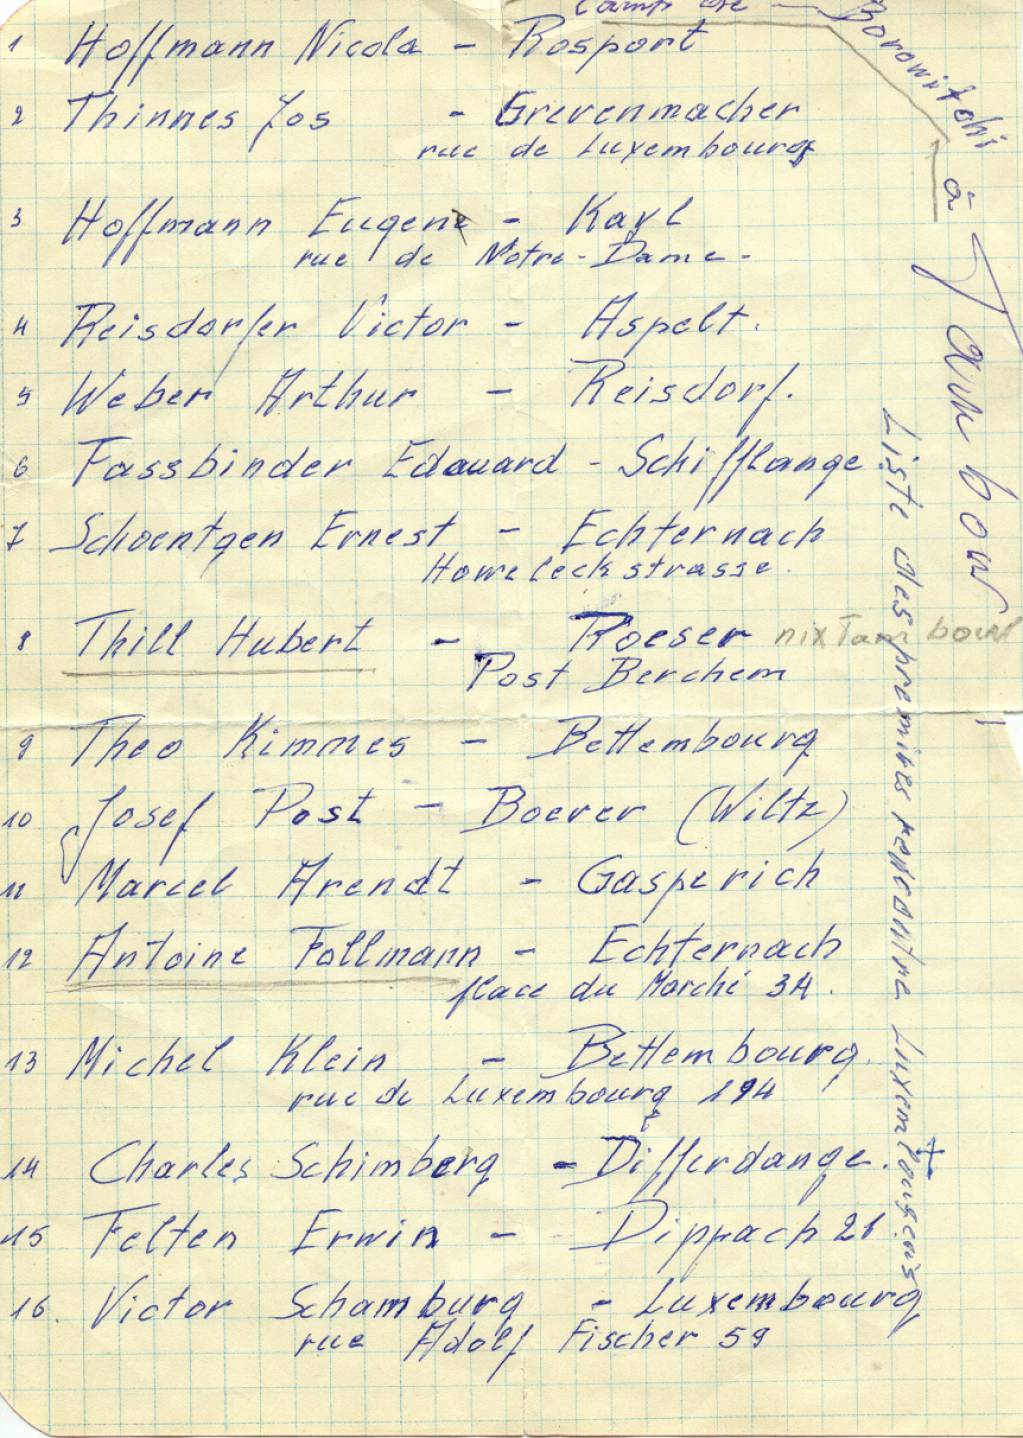 Camp de Borowitchi à Tambow
1 Hoffmann Nicola - Rosport
2 Thinnes Jos - Grevenmacher
rue de Luxembourg
3 Hoffmann Eugene - Kayl
rue de Notre-Dame -
4 Reisdorfer Victor - Aspelt.
5 Weber Arthur - Reisdorf.
6 Fassbinder Edouard - Schifflange
7 Schoentgen Ernest - Echternach
Howeleckstrasse.
8 Thill Hubert - Roeser nix Tambow
Post Berchem
9 Theo Kimmes - Bettembourg
10 Josef Post - Boever (Wiltz)
11 Marcel Arendt - Gasperich
12 Antoine Follmann - Echternach
place du Marché 34.
13 Michel Klein - Bettembourg.
rue de Luxembourg 194
14 Charles Schimberg - Differdange.
15 Felten Erwin - Dippach 21
16. Victor Schamburg - Luxembourg
rue Adolf Fischer 59
Liste des premiers Luxembougeois